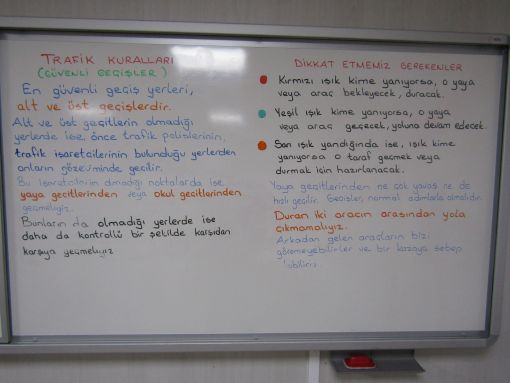 TRAFİK KURALLARI
(GÜVENLİ GEÇİŞLER)
En güvenli geçiş yerleri,
alt ve üst geçişlerdir.
Alt ve üst geçitlerin olmadığı
yerlerde ise, önce trafik polislerinin,
trafik işaretçilerinin bulunduğu yerlerden
onların gözetiminde geçilir.
Bu işaretçilerin olmadığı noktalarda ise
yaya geçitlerinden veya okul geçitlerinden
geçmeliyiz.
Bunların da olmadığı yerlerde ise
daha da kontrollü bir şekilde karşıdan
karşıya geçmeliyiz
DİKKAT ETMEMİZ GEREKENLER
Kırmızı ışık kime yanıyorsa, o yaya
veya araç bekleyecek, duracak.
Yeşil ışık kime yanıyorsa, o yaya
veya araç geçecek, yoluna devam edecek.
Sarı ışık yandığında ise, ışık kime
yanıyorsa o taraf geçmek veya
durmak için hazırlanacak.
Yaya geçitlerinden ne çok yavaş ne de
hızlı geçilir. Geçişler, normal adımlarla olmalıdır.
Duran iki aracın arasından yola
çıkmamalıyız.
Arkadan gelen araçların bizi
göremeyebilirler ve bir kazaya sebep